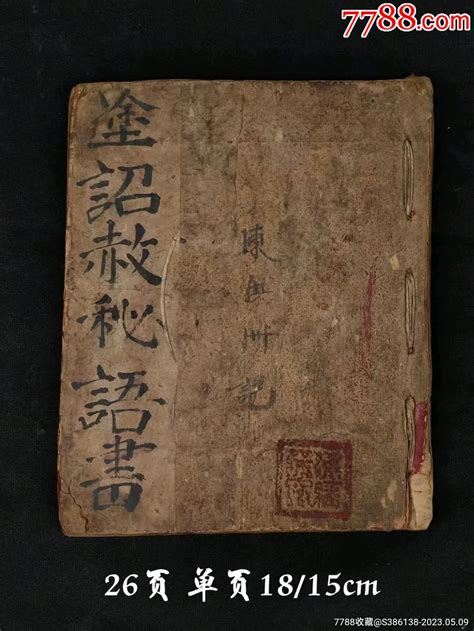 7788.com
塗詔赦秘語書
陳
記
26页 单页18/15cm
7788收藏@S386138-2023.05.09